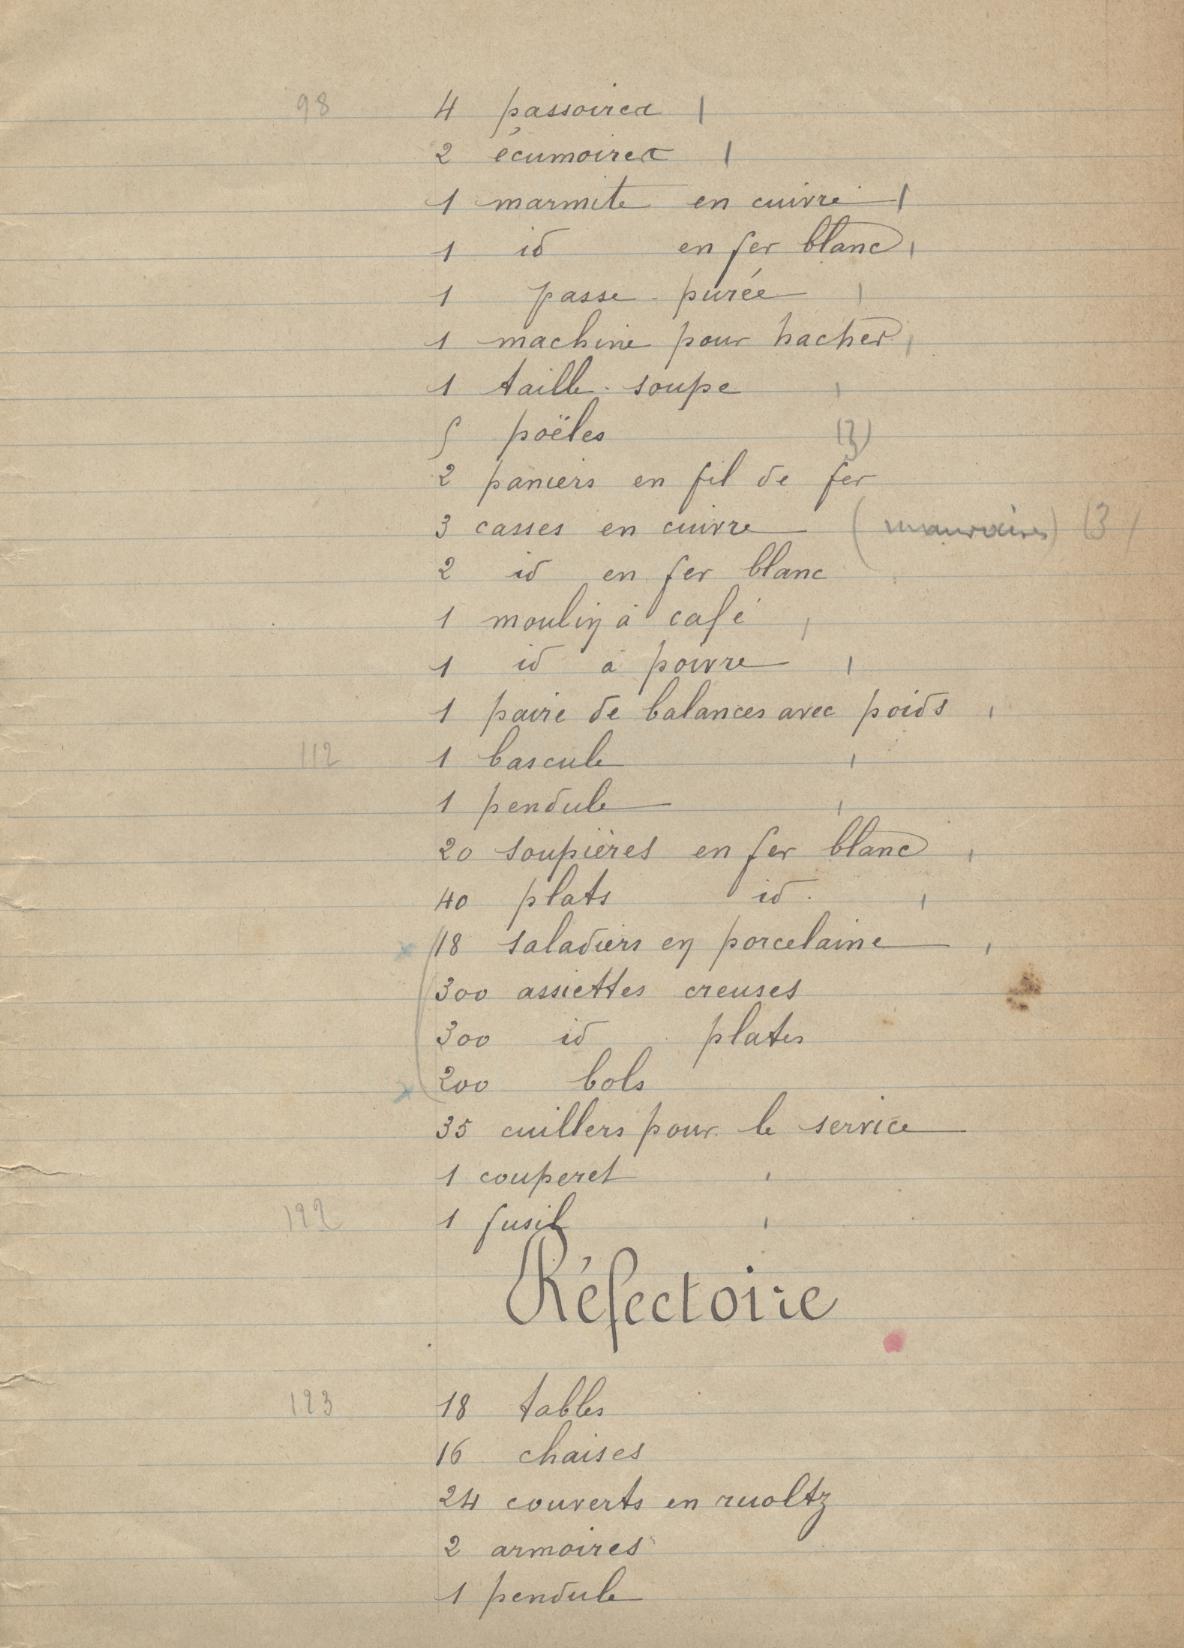 98 4 passoires |
2 écumoires |
1 marmite en cuivre |
1 id en fer blanc |
1 passe-purée |
1 machine pour hacher |
1 taille-soupe |
5 poëles (3)
2 paniers en fil de fer
3 casses en cuivre (mauvaises) (3)
2 id en fer blanc
1 moulin à café |
1 id à poivre |
1 paire de balances avec poids |
112 1 bascule |
1 pendule |
20 soupières en fer blanc |
40 plats id. |
x 18 saladiers en porcelaine |
300 assiettes creuses
300 id plates
x 200 bols
35 cuillers pour le service
1 couperet |
122 1 fusil |
Réfectoire
123 18 tables
16 chaises
24 couverts en ruoltz
2 armoires
1 pendule